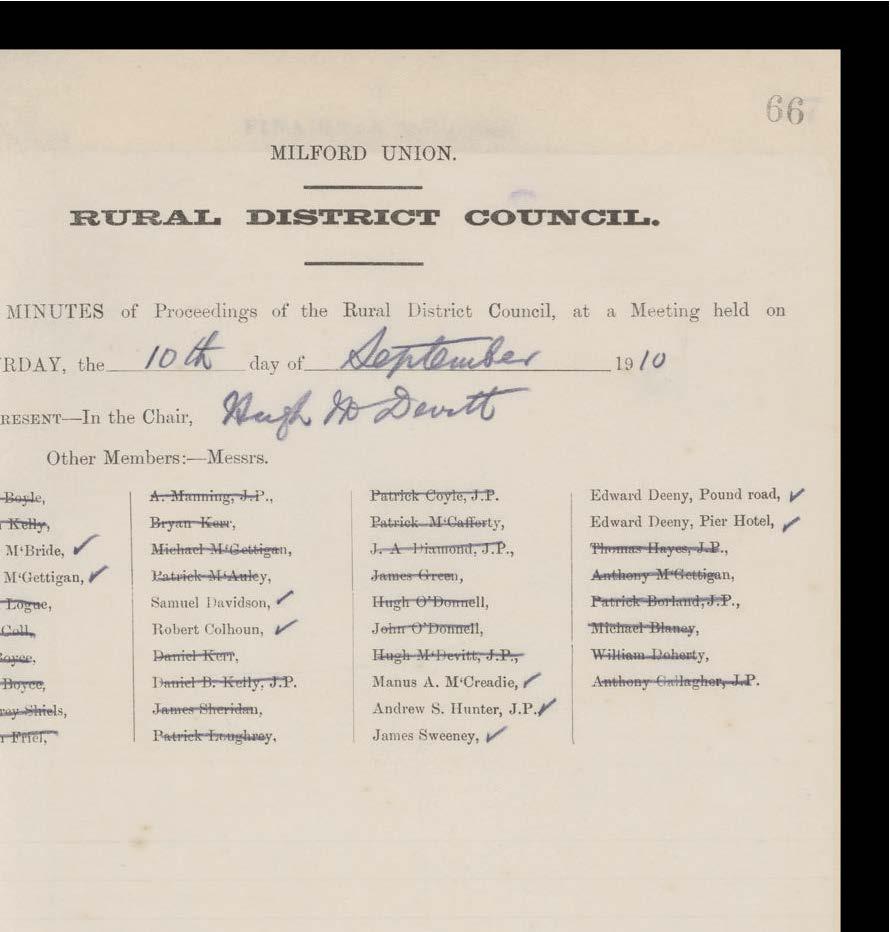 66
MILFORD UNION.
RURAL DISTRICT COUNCIL.
MINUTES of Proceedings of the Rural District Council, at a Meeting held on
RDAY, the 10th day of September 1910
RESENT—In the Chair, Hugh McDevitt
Other Members:—Messrs.
Boyle,
Kelly,
M'Bride,
M'Gettigan,
Logue,
Coll,
Boyce,
Boyce,
Shiels,
Friel,
A. Manning, J.P.,
Bryan Kerr,
Michael M'Gettigan,
Patrick M'Auley,
Samuel Davidson,
Robert Colhoun,
Daniel Kerr,
Daniel B. Kelly, J.P.
James Sheridan,
Patrick Loughrey,
Patrick Coyle, J.P.
Patrick M'Cafferty,
J. A. Diamond, J.P.,
James Green,
Hugh O'Donnell,
John O'Donnell,
Hugh M'Devitt, J.P.,
Manus A. M'Creadie,
Andrew S. Hunter, J.P.
James Sweeney,
Edward Deeny, Pound road,
Edward Deeny, Pier Hotel,
Thomas Hayes, J.P.,
Anthony M'Gettigan,
Patrick Borland, J.P.,
Michael Blaney,
William Doherty,
Anthony Gallagher, J.P.